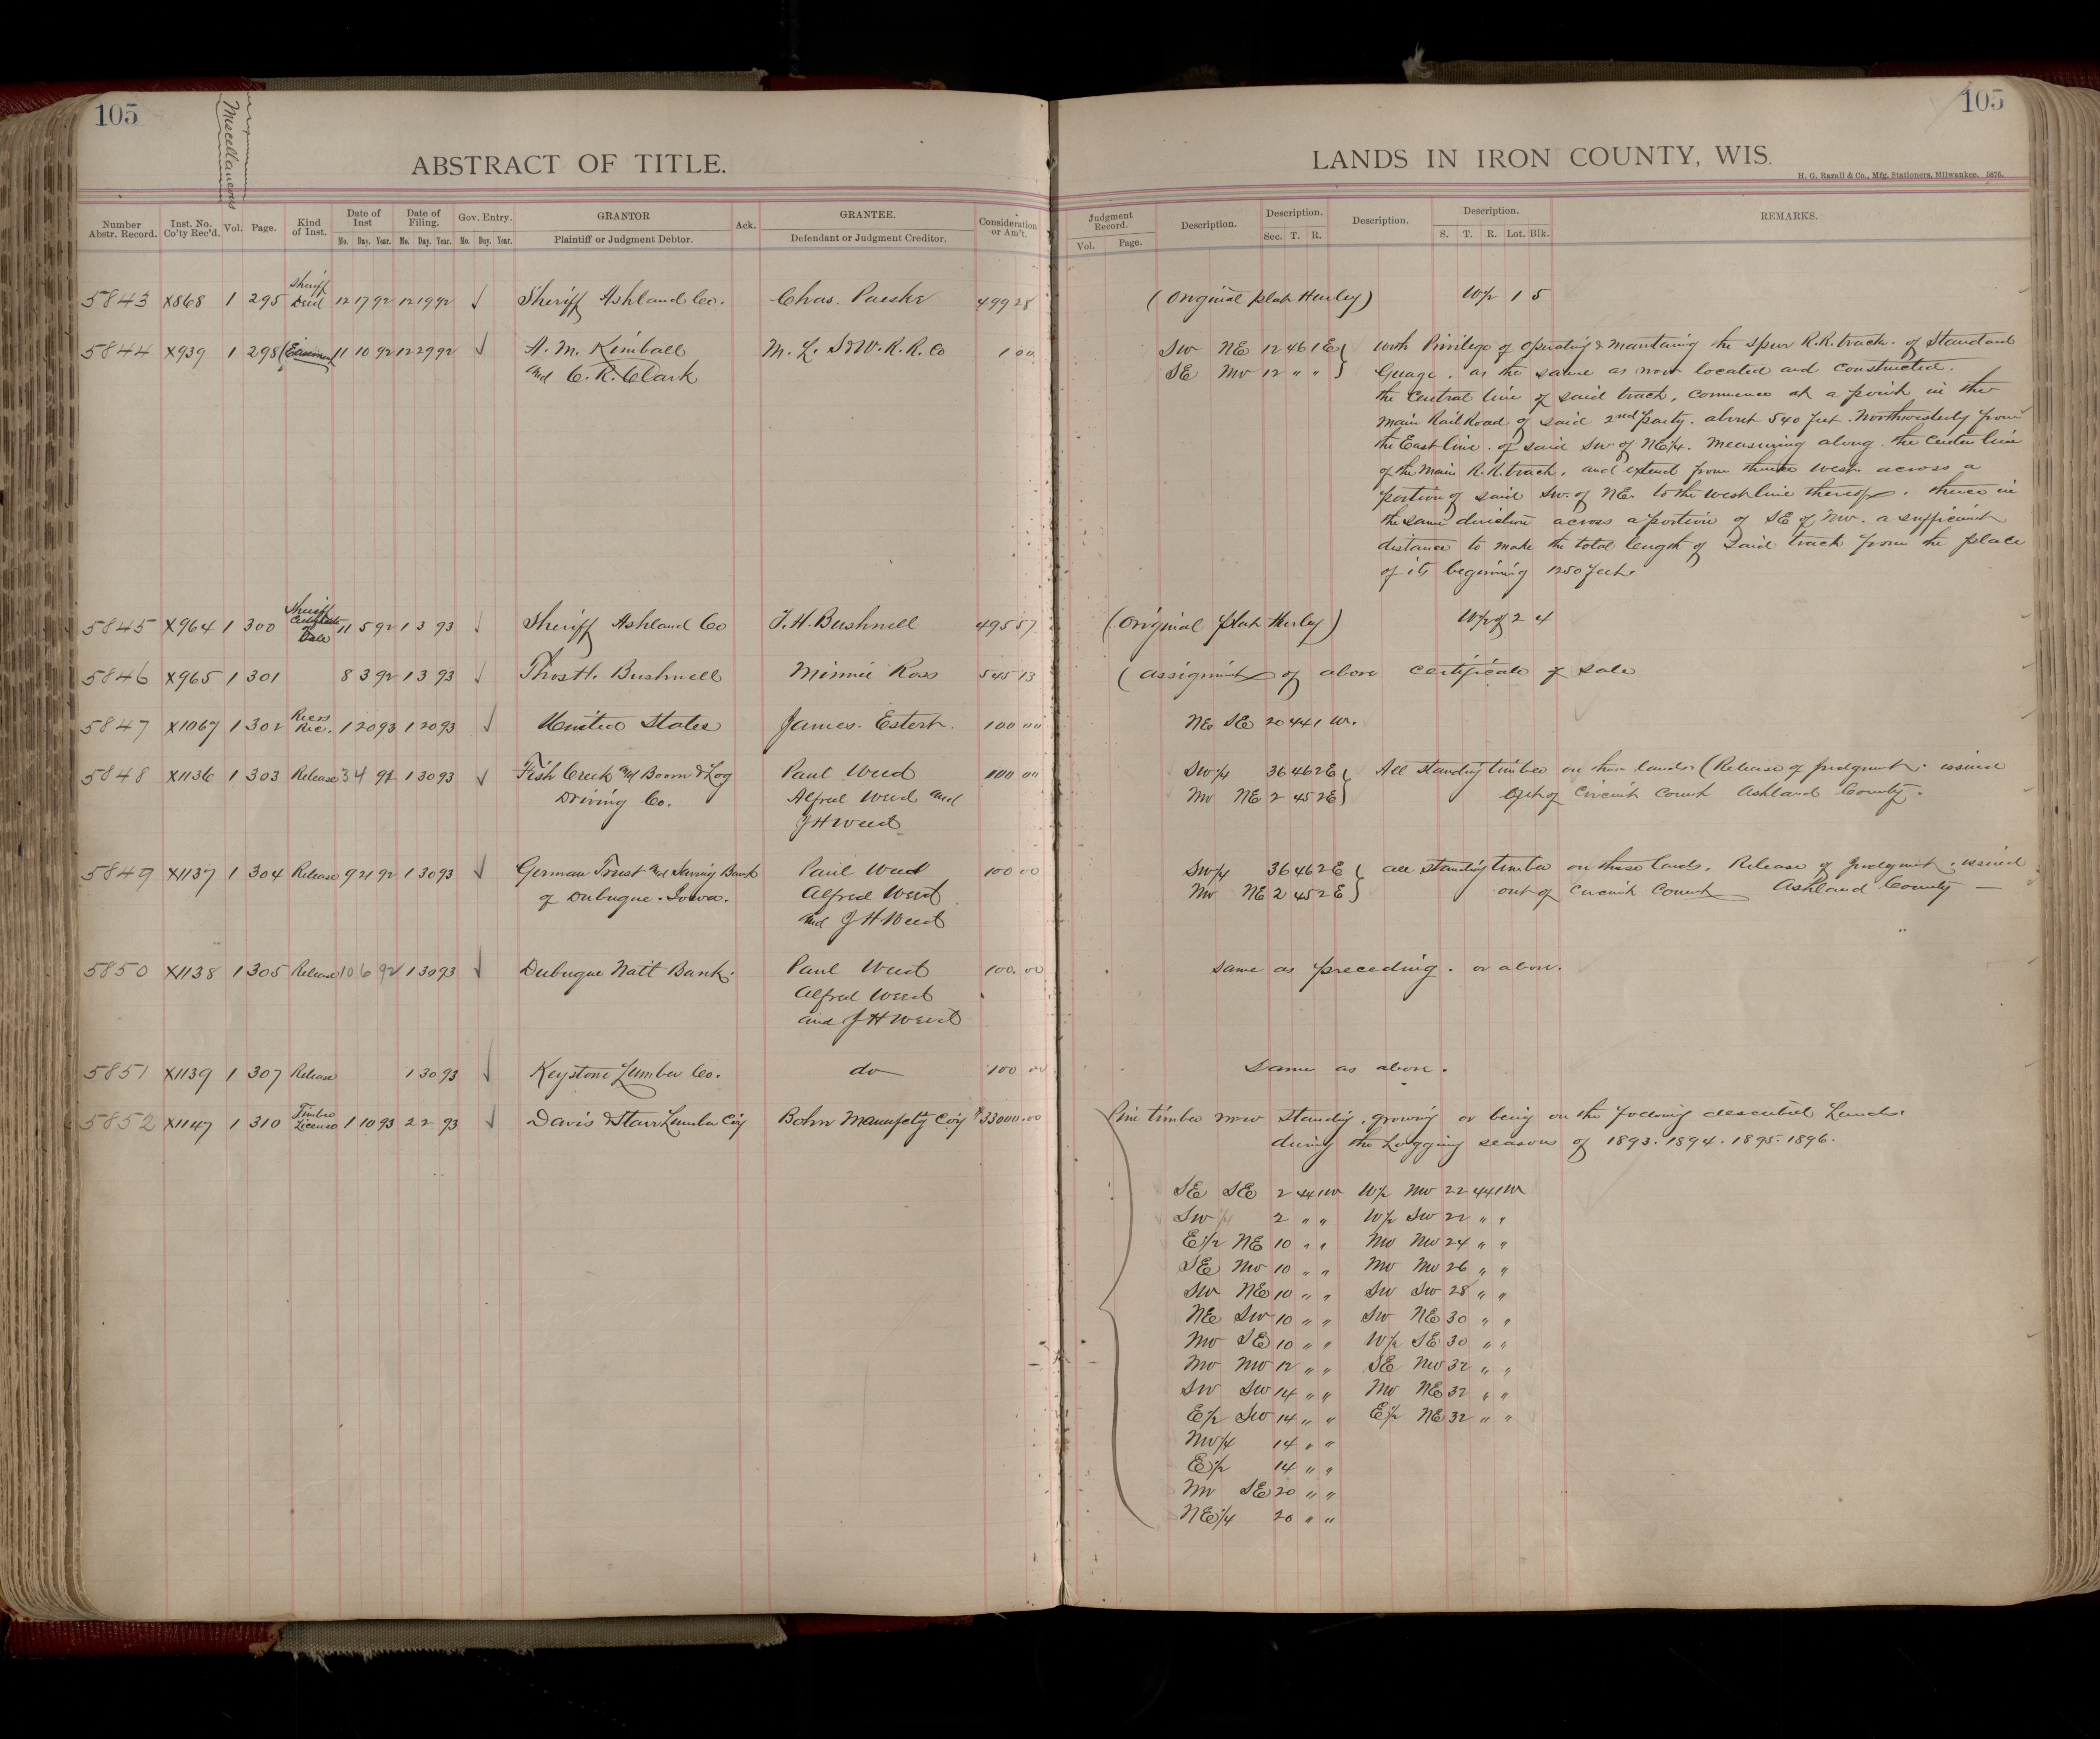 105
Miscellaneous
ABSTRACT OF TITLE.
Number Abstr. Record. Inst. No. Co'ty Rec'd. Vol. Page. Kind of Inst. Date of Inst Mo. Day. Year. Date of Filing. Mo. Day. Year. Gov. Entry. Mo. Day. Year. GRANTOR Plaintiff or Judgment Debtor. Ack. GRANTEE. Defendant or Judgment Creditor. Consideration or Am't.
5843 X868 1 295 Sheriff Deed 12 17 92 12 19 92 Sheriff Ashland Co. Chas. Paeske 499 28
5844 X939 1 298 (Easement 11 10 92 12 29 92 A. M. Kimball M. L. S & W. R. R. Co 1 00
and C. R. Clark
5845 X964 1 300 Sheriff Certificate of Sale 11 5 92 1 3 93 Sheriff Ashland Co T. H. Bushnell 495 57
5846 X965 1 301 8 3 92 1 3 93 Thos H. Bushnell Minnie Ross 545 13
5847 X1067 1 302 Recrs Rec. 1 20 93 1 20 93 United States James Estert 100 00
5848 X1136 1 303 Release 3 4 92 1 30 93 Fish Creek and Boom & Log Paul Weed 100 00
Driving Co. Alfred Weed and
J H Weed
5849 X1137 1 304 Release 9 21 92 1 30 93 German Trust and Saving Bank Paul Weed 100 00
of Dubuque. Iowa. Alfred Weed
and J H Weed
5850 X1138 1 305 Release 10 6 92 1 30 93 Dubuque Nat'l Bank. Paul Weed 100. 00
Alfred Weed
and J H Weed
5851 X1139 1 307 Release 1 30 93 Keystone Lumber Co. do 100 00
5852 X1147 1 310 Timber License 1 10 93 2 2 93 Davis & Starr Lumber Coy Bohn Manufctg Coy $33000.00
105
LANDS IN IRON COUNTY, WIS.
H. G. Razall & Co., Mfg. Stationers, Milwaukee. 5876.
Judgment Record. Vol. Page. Description. Description. Sec. T. R. Description. Description. S. T. R. Lot. Blk. REMARKS.
(Original plat Hurley) W½ 1 5
SW NE 12 46 1E } With Privilege of operating & maintaing the spur R.R. track. of Standard
SE NW 12 " " } Guage. as the same as now located and constructed.
the Central line of said track, commence at a point in the
main Rail Road of said 2nd party. about 540 feet. Northwesterly from
the East line. of said SW of NE¼. measuring along the Center line
of the Main R.R. track, and extend from thence West. across a
portion of said SW. of NE. to the west line thereof. thence in
the same direction across a portion of SE of NW. a sufficient
distance to make the total length of said track from the place
of its beginning 1250 feet.
(Original plat Hurley) W½ of 2 4
(assignment of above certificate of sale
NE SE 20 44 1 W.
SW¼ 36 46 2E } All standing timber on these lands (Release of judgment. issued
NW NE 2 45 2E } out of Circuit Court Ashland County.
SW¼ 36 46 2E } all standing timber on these lands. Release of Judgment. issued
NW NE 2 45 2E } out of Circuit Court Ashland County —
same as preceding. or above.
Same as above.
Pine timber now standing, growing or being on the following described Lands
during the Logging seasons of 1893. 1894. 1895. 1896.
SE SE 2 44 1W W½ NW 22 44 1W
SW¼ 2 " " W½ SW 22 " "
E½ NE 10 " " NW NW 24 " "
SE NW 10 " " NW NW 26 " "
SW NE 10 " " SW SW 28 " "
NE SW 10 " " SW NE 30 " "
NW SE 10 " " W½ SE 30 " "
NW NW 12 " " SE NW 32 " "
SW SW 14 " " NW NE 32 " "
E½ SW 14 " " E½ NE 32 " "
NW¼ 14 " "
E½ 14 " "
NW SE 20 " "
NE¼ 20 " "